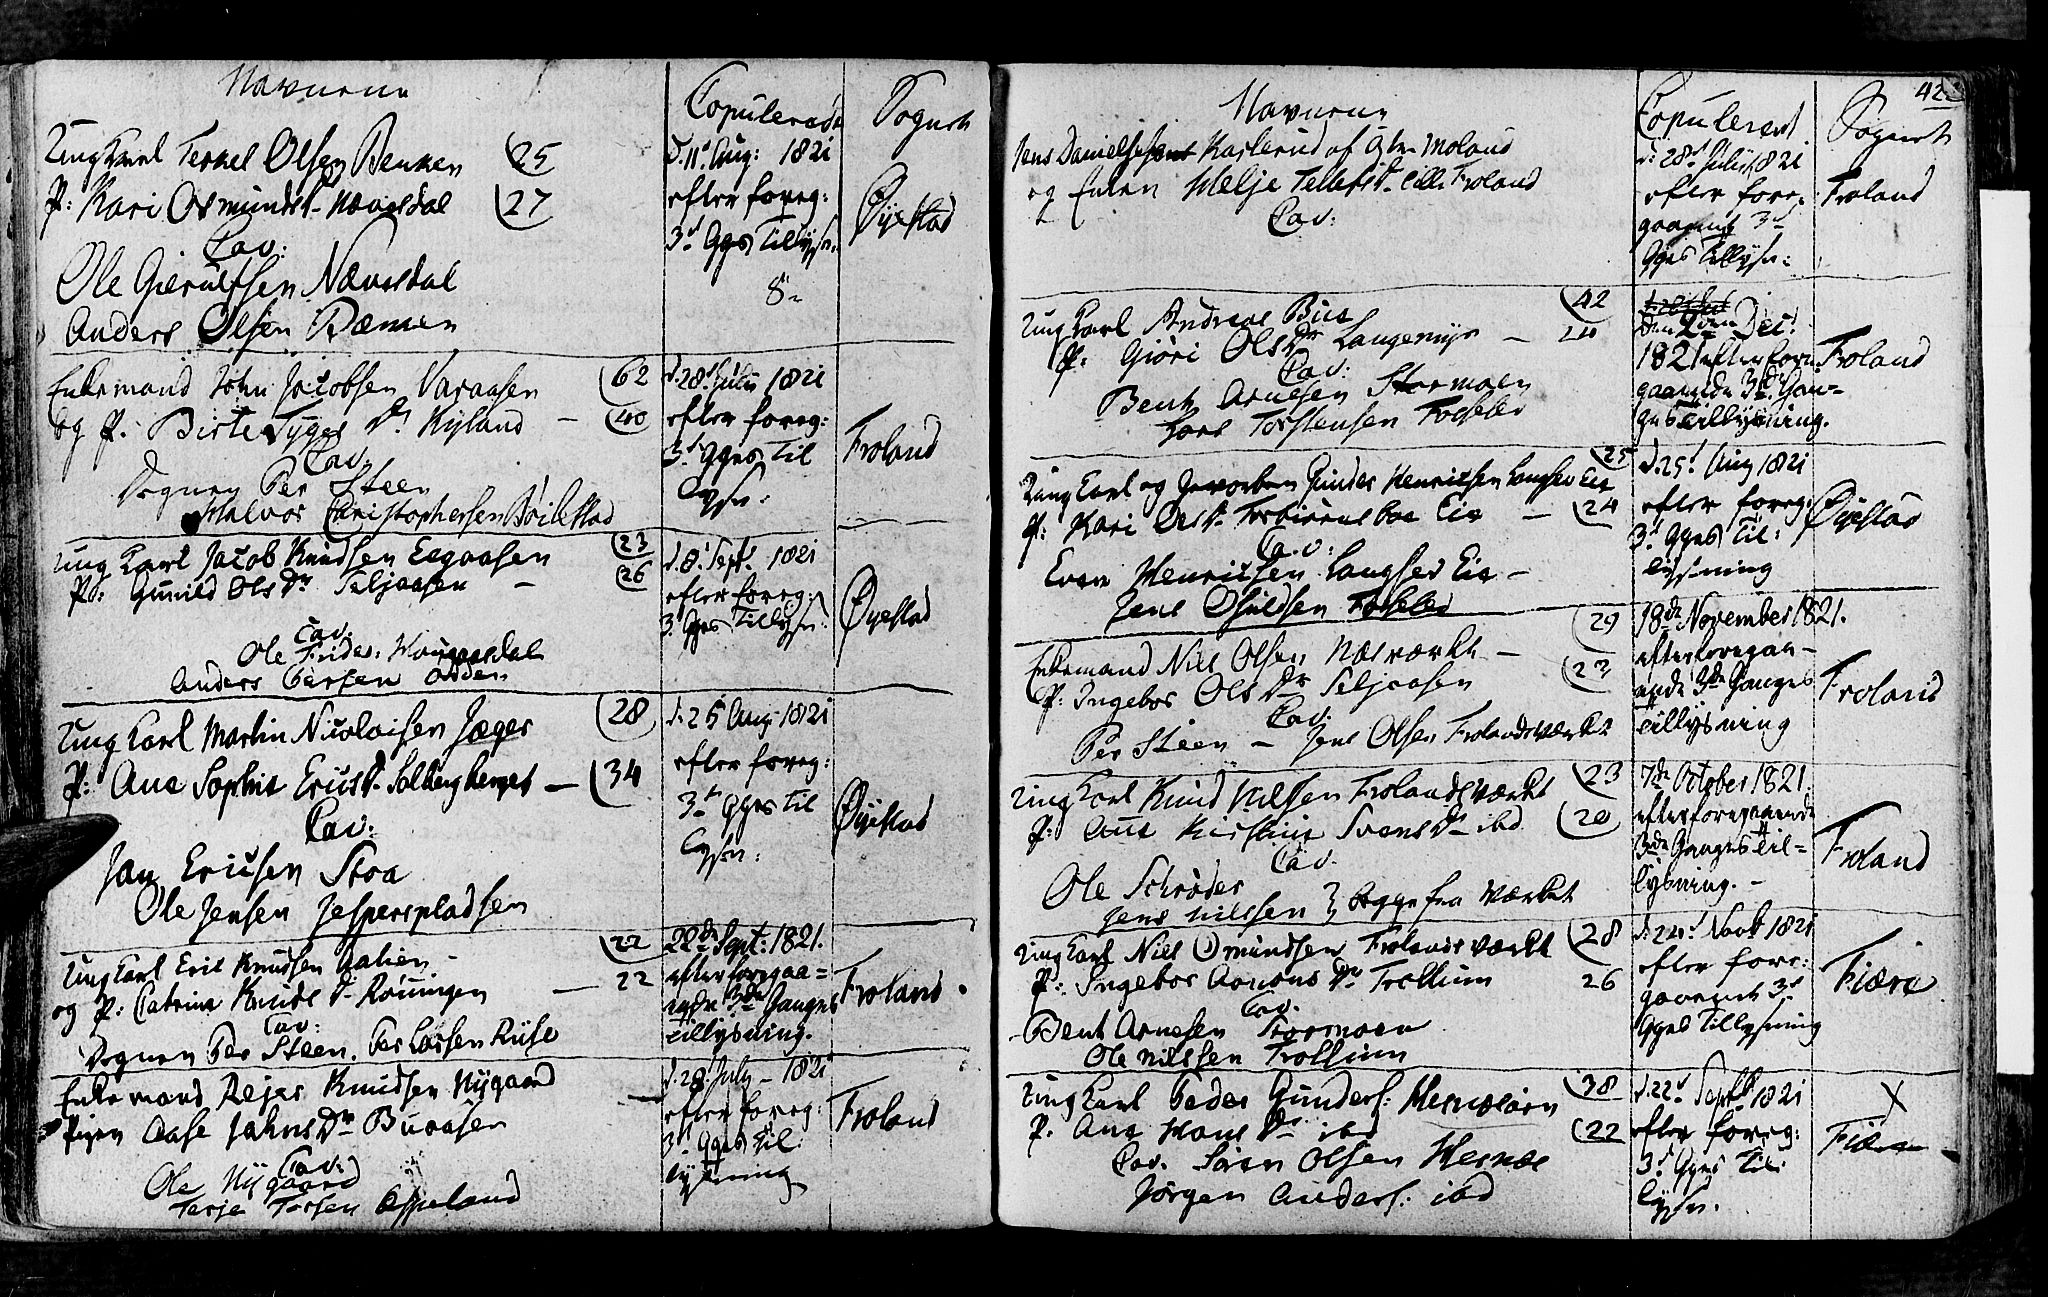 Navnene
Copulerede
Sognet
Ungkarl Terkel Olsen Benken (25
P: Kari Osmundsd. Nævesdal (27
Cav:
Ole Gierulfsen Nævesdal
Anders Olsen
d. 11t Aug: 1821
efter foreg:
3d Gges Tillysn.
8
Øyestad
Enkemand John Jacobsen Varaasen (62
og P. Birte Tyges Dr Hyland – (40
Cav.
Dognen Per Steen
Halvor Christophersen Bøilestad
d. 28d July 1821
efter foreg:
3d Gges Til
lysn:
Froland
ung Karl Jacob Knudsen Eegaasen (23
P: Gunild Ols Dr Seljaasen – (26
Cav.
Ole
Anders Persen Odden
d. 8d Sept. 1821
efter foreg:
3d Gges Tillysn.
Øyestad
ung Karl Martin Nicolaisen Jæger (28
P: Ane Sophie Ericsd. Solbergberget – (34
Cav:
Jan Ericsen Stoa
Ole Jensen Jesperspladsen
d. 25 Aug 1821
efter foreg:
3d Gges Til
lysn:
Øyestad
ungKarl Eric Knudsen – (22
og P: Catrine Knuds d. Rønningen — 22
Cav:
Dognen Per Steen. Per Larsen Riise
22de Sept: 1821.
efter foregaa=
ende 3de Ganges
tillysning.
Froland.
Enkemand Rejer Knudsen Nygaard –
Pigen Aase Jahns Dr Buaasen
Cav:
Ole Nygaard
Terje Torsen Espeland
d. 28 July – 1821
efter foreg:
3d Gges Til
lysning
Froland
42
Navnene
Copuleret
Sognet
Jens Danielsen Karlerud af Østre Moland
og Enken Helje Tellefsd. Lille Froland
Cav:
d. 28d July 1821
efter fore=
gaaende 3d
Gges Tillysn:
Froland
ungKarl Andreas Bue (42
P. Giøri Ols Dr Langemyr –
Cav:
Bent Arnesen Stormoen
Lars Torstensen Fosselie
den 2den Dec.
1821 efter fore
gaaende 3de Gan=
ges Tillysning.
Froland
ung Karl og Gevorben Gunder Henriksen Langsev Eie (25
P: Kari Olsd. Torbiørnsboe Eie – (24
Cav:
Even Henriksen Langsev Eie –
Jens Osuldsen Fosselie
d. 25d Aug 1821
efter foreg:
3d Gges Til:
lysning
Øyestad
Enkemand Niels Olsen Næsværket – (29
P: Ingebor Ols Dr Seljaasen (23
Cav.
Per Steen – Jens Olsen Frolandsværket
18de November 1821.
efter foregaa=
ende 3de Ganges
tillysning
Froland
ungKarl Knud Nilsen Frolandsværket (23
P: Ane Kirstine Svens Dr ibd (20
Cav.
Ole Schrøder
Jens Nilssen } begge fra Værket
7de October 1821.
efter foregaaende
3de Ganges til=
lysning. –
Froland
ungKarl Niels Osmundsen Frolandsværket (28
P: Ingebor Aanons Dr Trollium 26
Cav.
Bent Arnesen Stormoen
Ole Nilssen Trollium
d. 24d Novb 1821
efter fore:
gaaende 3d
Gges Tillysning
Fiære
ungKarl Peder Gunders: Hesnesøen (38
P. Ane Hans Dr ibd (22
Cav. Søren Olsen Hesnæs
Jørgen Anders: ibd
d. 22d Septb 1821
efter foreg:
3d Gges Til
lysn.
X
Fiære